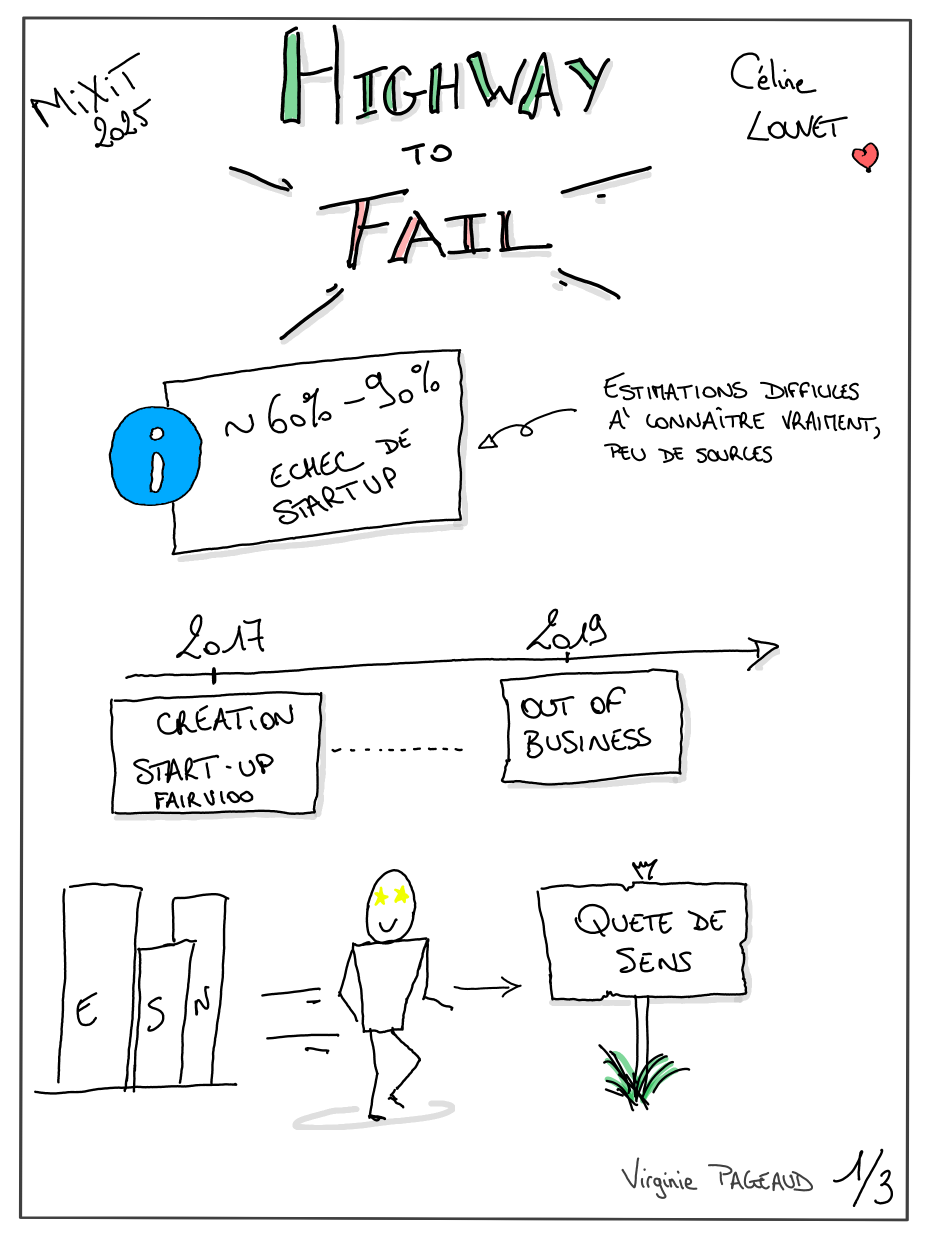 MiXiT
2025
HIGHWAY
TO
FAIL
Céline
LOUVET
i
~ 60% - 90%
ECHEC DE
STARTUP
ESTIMATIONS DIFFICILES
A' CONNAÎTRE VRAIMENT,
PEU DE SOURCES
2017
2019
CRÉATION
START-UP
FAIRVIOO
OUT OF
BUSINESS
E S N
QUETE DE
SENS
Virginie PAGEAUD 1/3